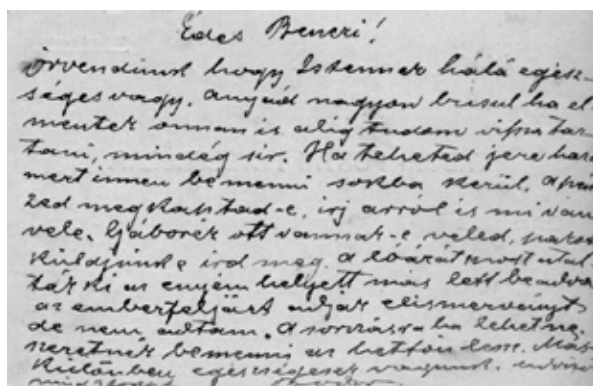 Édes Bencri!
örvendünk hogy Istennek hálá egész-
séges vagy. anyád nagyon busul ha el
mentek onnan is alig tudom vissza tar-
tani, mindég sir. Ha teheted jere haza
mert innen bemenni sokba kerül. a pén
zed megkaptad-e, irj arról is mi van
vele. Gáborék ott vannak-e veled,
küldjünk-e ird meg. a lóárát most utal-
ták ki az enyém helyett más lett beadva
az emberfeljárt adjak elismervényt
de nem adtam. A sorozásra ha lehetne
szeretnék bemenni az hettőn lesz. Más
különben egészségesek vagyunk.